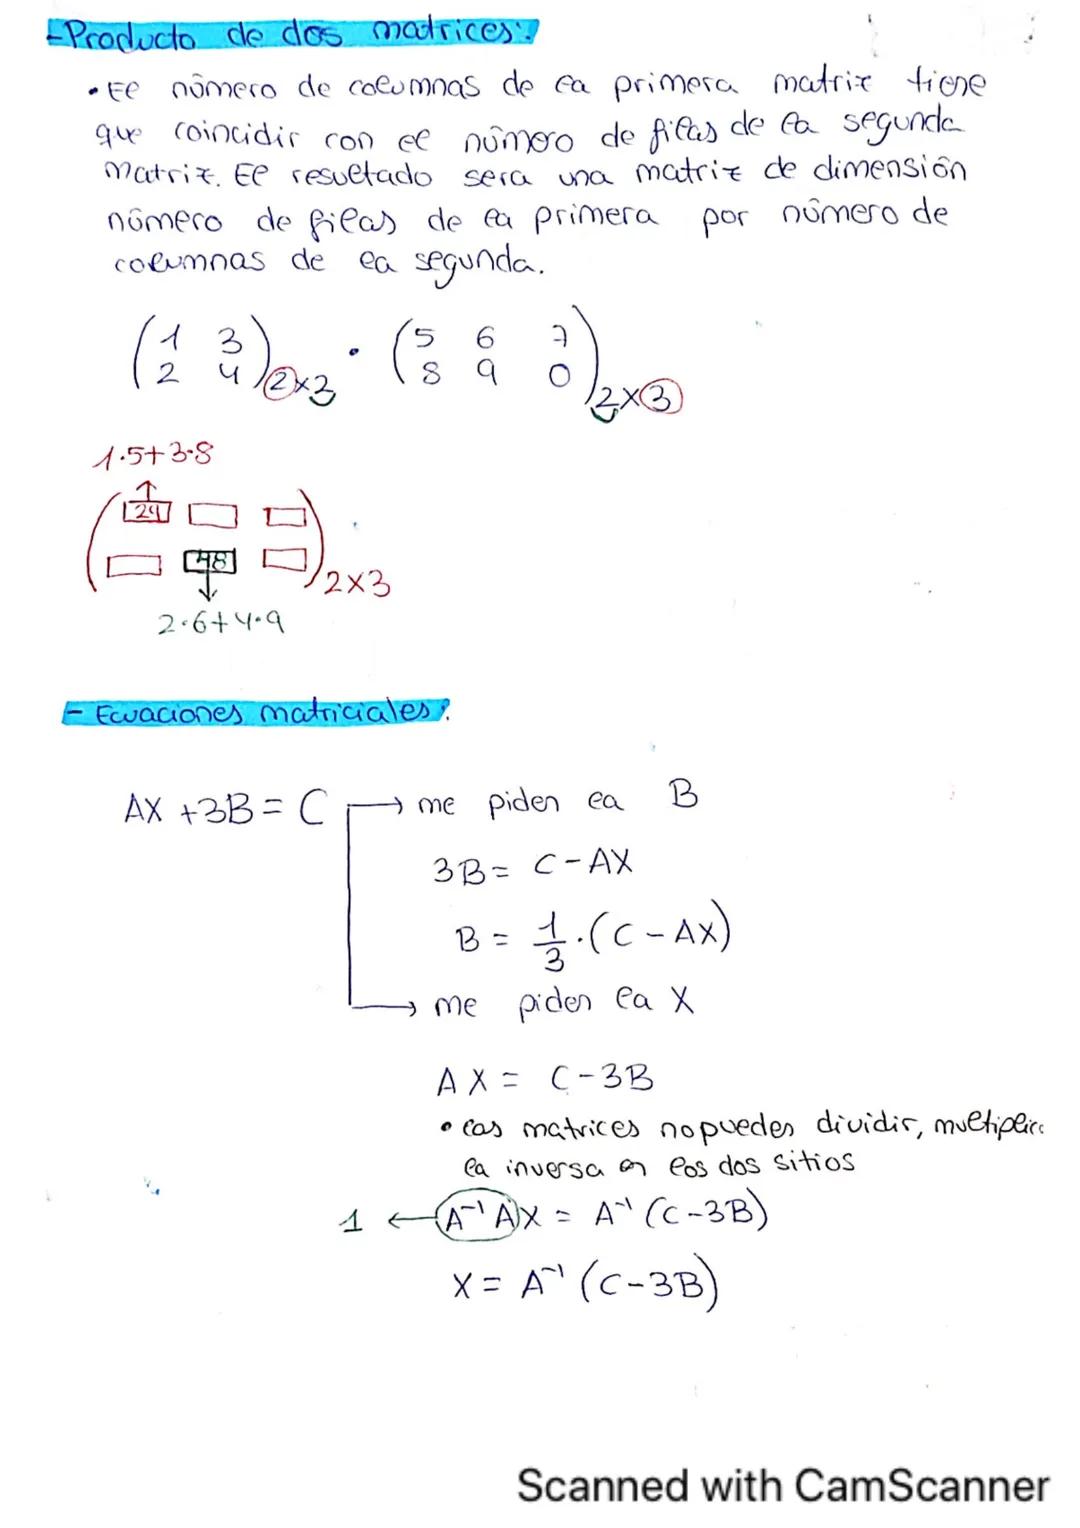 - Producto de dos matrices:
• El número de columnas de la primera matriz tiene
que coincidir con el número de filas de la segunda
matriz. El resultado sera una matriz de dimensión
número de filas de la primera por número de
columnas de la segunda.
(1 3) 2x2 · (5 6 7) 2x3
(2 4) (8 9 0)
1·5+3·8
(29 □ □)
(□ 48 □) 2x3
2·6+4·9
- Ecuaciones matriciales:
AX +3B = C → me piden la B
3B = C - AX
B = 1/3 · (C - AX)
→ me piden la X
AX = C - 3B
• las matrices no puedes dividir, multiplica
la inversa en los dos sitios
1 ← A⁻¹ A X = A⁻¹ (C - 3B)
X = A⁻¹ (C - 3B)
Scanned with CamScanner